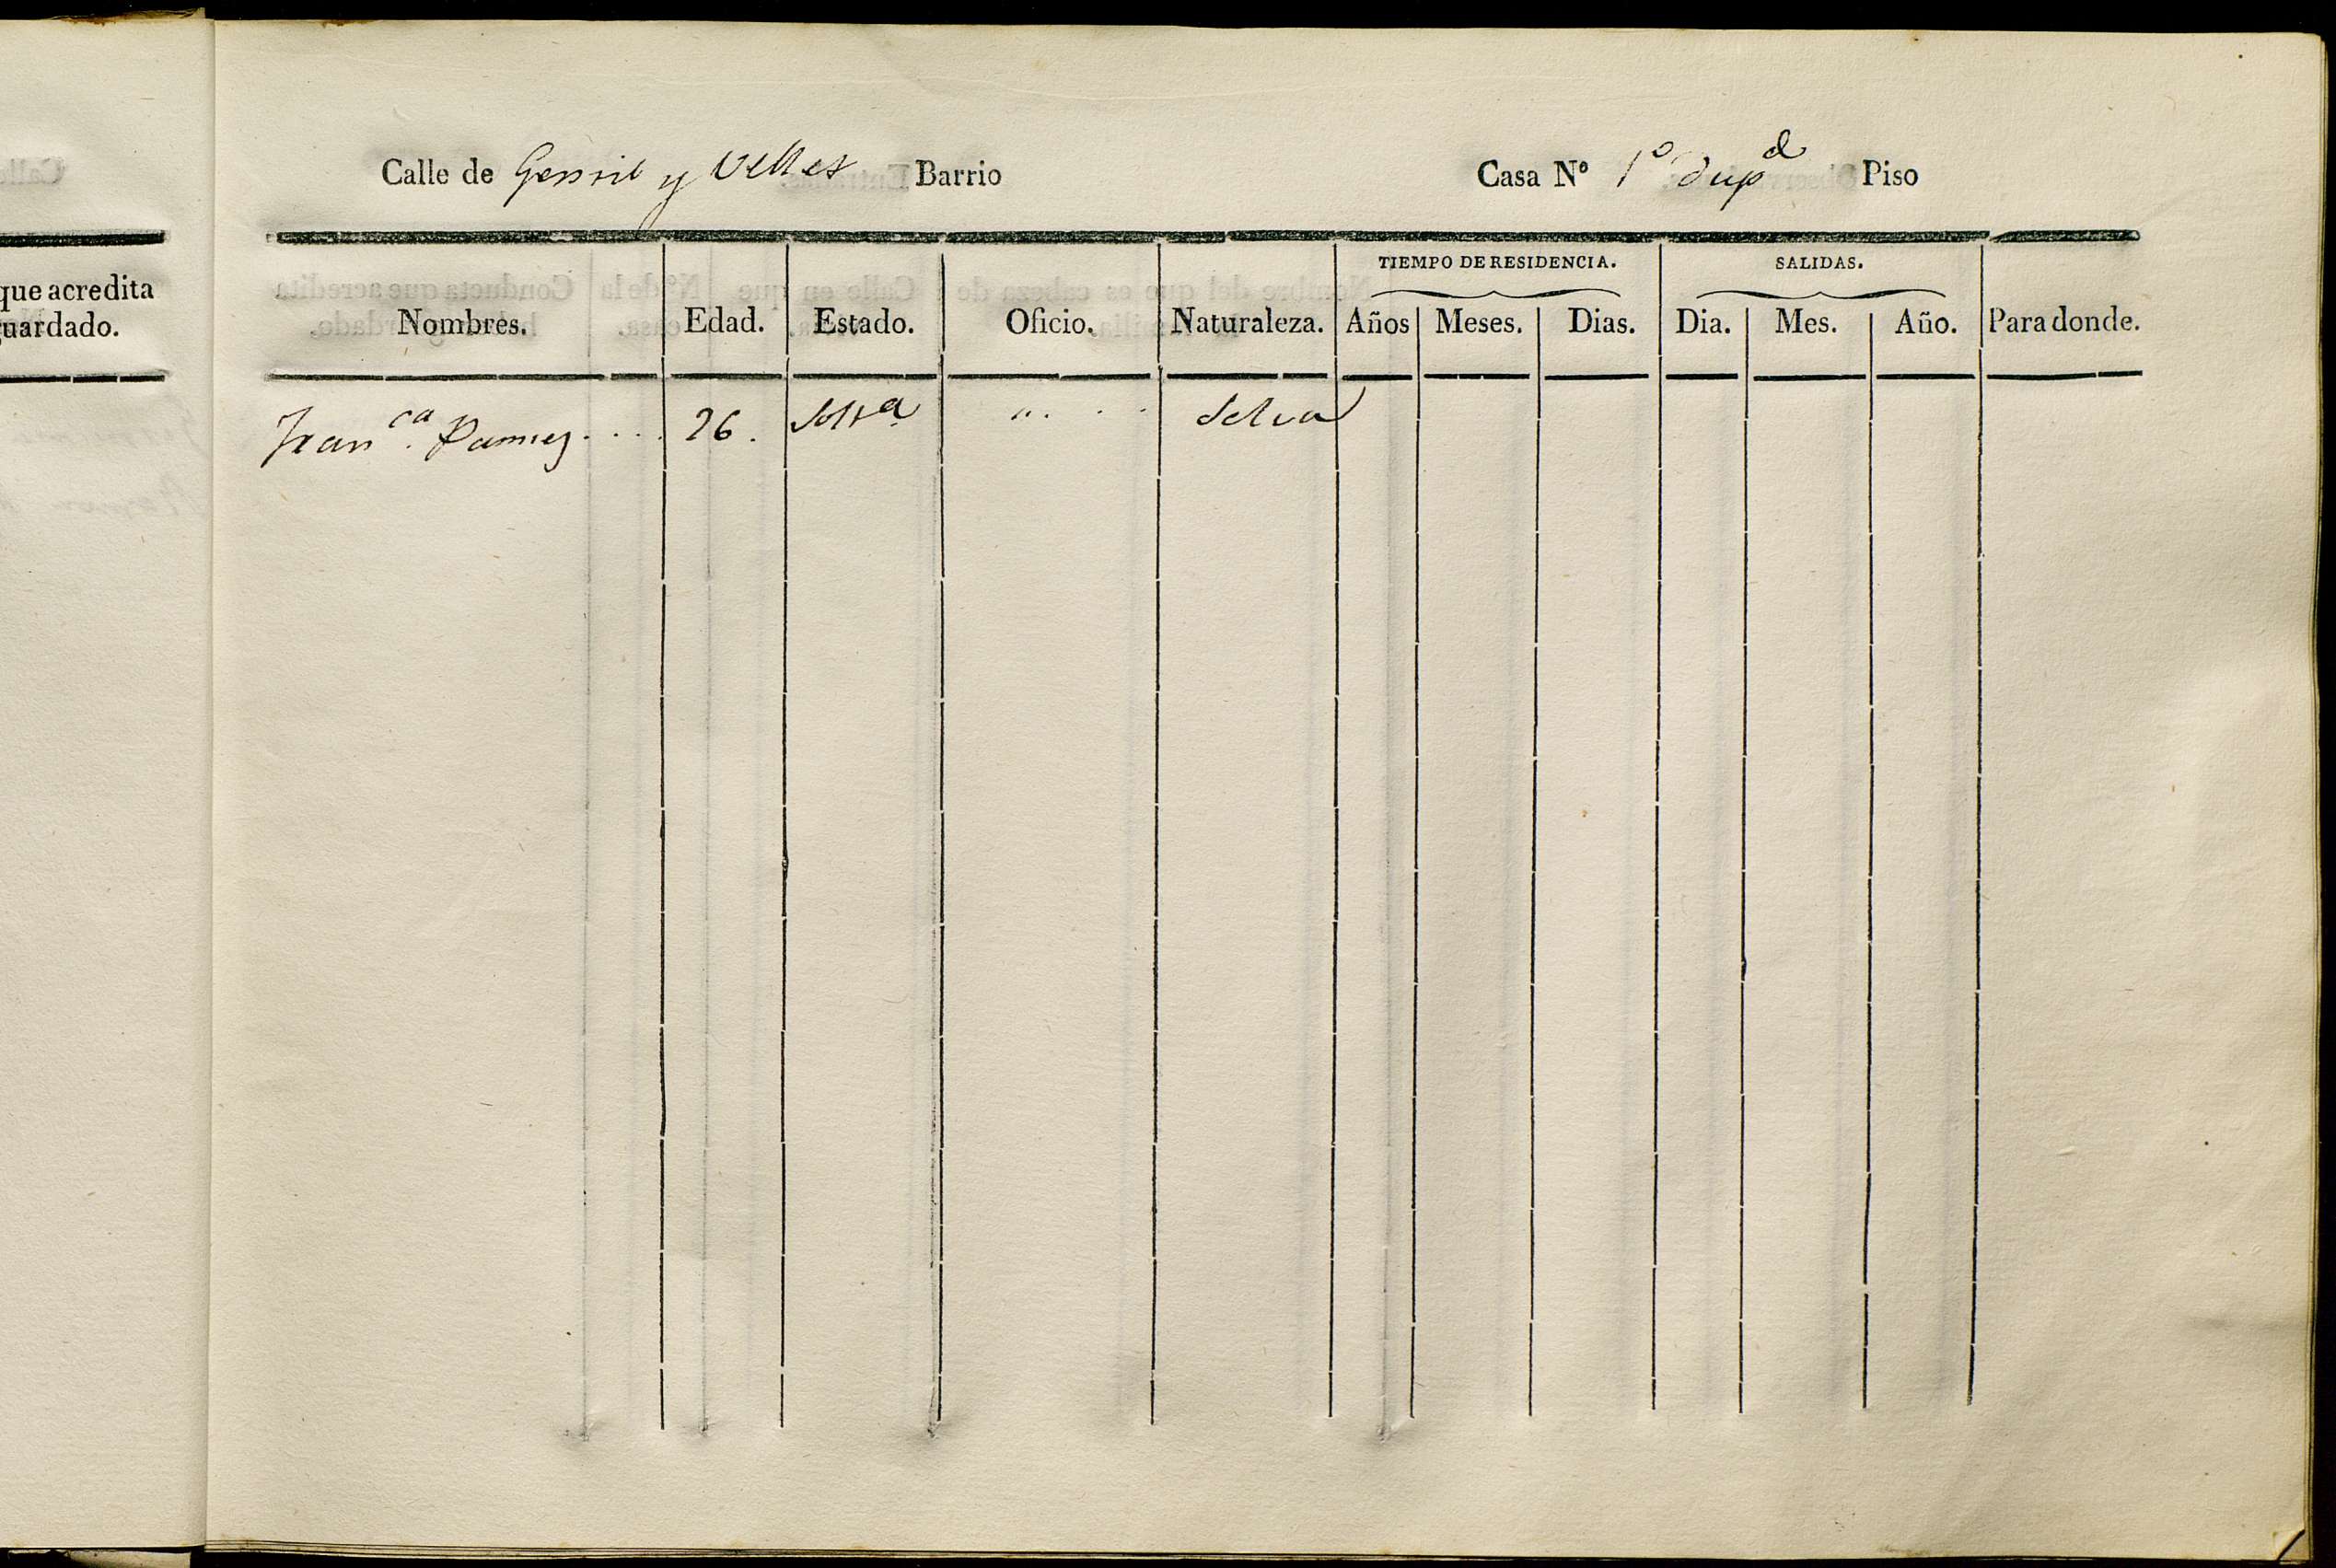 que acredita
uardado.
Calle de Gensil y Velles Barrio Casa Nº 1º dupd Piso
TIEMPO DE RESIDENCIA. SALIDAS.
Nombres. Edad. Estado. Oficio. Naturaleza. Años Meses. Dias. Dia. Mes. Año. Para donde.
Franca. 26. Soltra " Selva